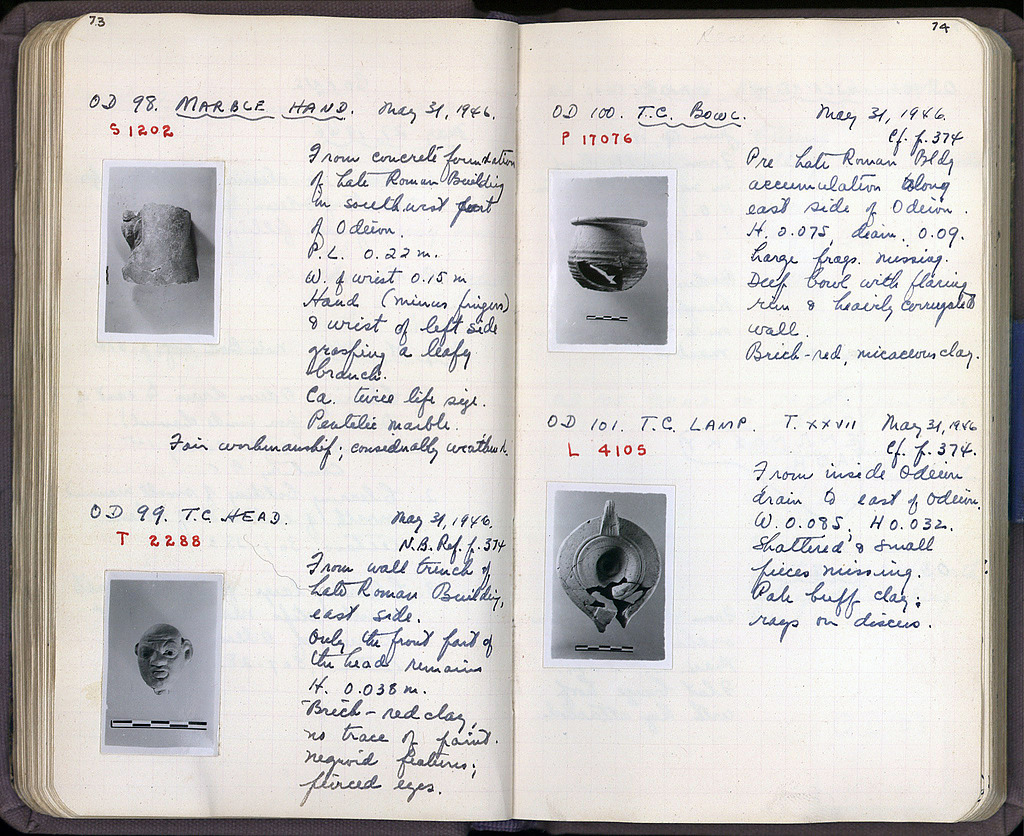 73
OD 98. MARBLE HAND. May 31, 1946.
S 1202
From concrete foundation
of Late Roman Building
in southwest part
of Odeion.
P.L. 0.22 m.
W. of wrist 0.15 m
Hand (minus fingers)
& wrist of left side
grasping a leafy
branch.
Ca. twice life size.
Pentelic marble.
Fair workmanship;
OD 99. T.C. HEAD. May 31, 1946.
T 2288
N.B. Ref. p. 374
From wall trench of
Late Roman Building,
east side.
Only the front part of
the head remains
H. 0.038 m.
Brick-red clay,
no trace of paint.
negroid features;
pierced eyes.
74
OD 100. T.C. BOWL. May 31, 1946.
P 17076
Cf. p. 374
Pre Late Roman Bldg
accumulation along
east side of Odeion.
H. 0.075, diam. 0.09.
Large frags. missing.
Deep bowl with flaring
rim & heavily corrugated
wall.
Brick-red, micaceous clay.
OD 101. T.C. LAMP. T. XXVII May 31, 1946
L 4105
Cf. p. 374.
From inside Odeion
drain to east of Odeion.
W. 0.085, H 0.032.
Shattered & small
pieces missing.
Pale buff clay;
rays on discus.